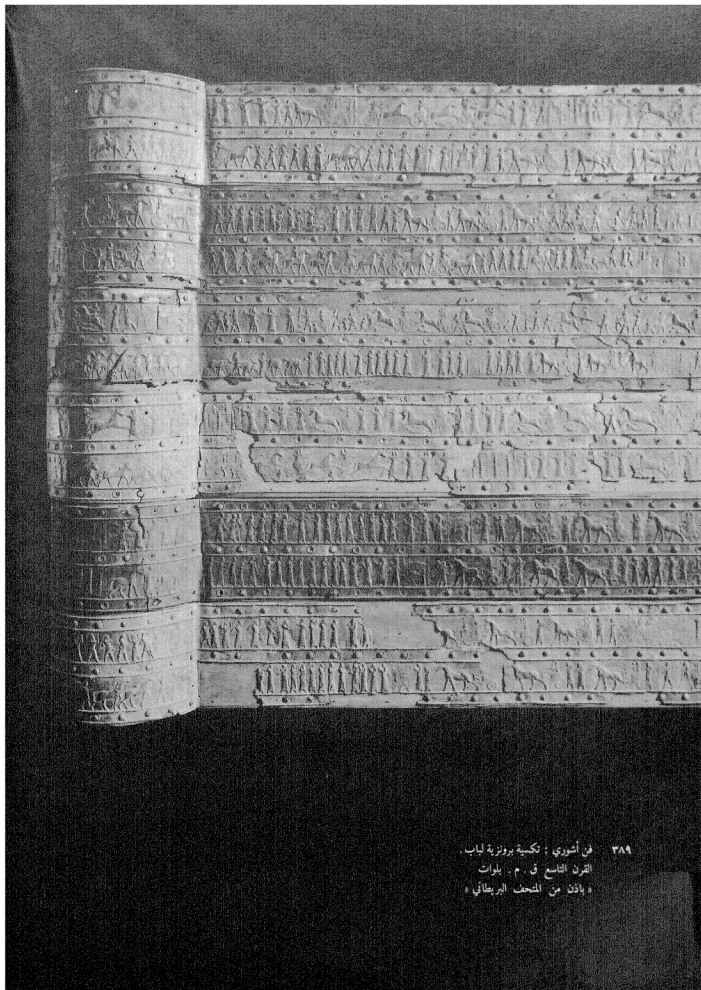 ٣٨٩ فن أشوري : تكسية برونزية لباب .
القرن التاسع ق . م . بلوات
« باذن من المتحف البريطاني »